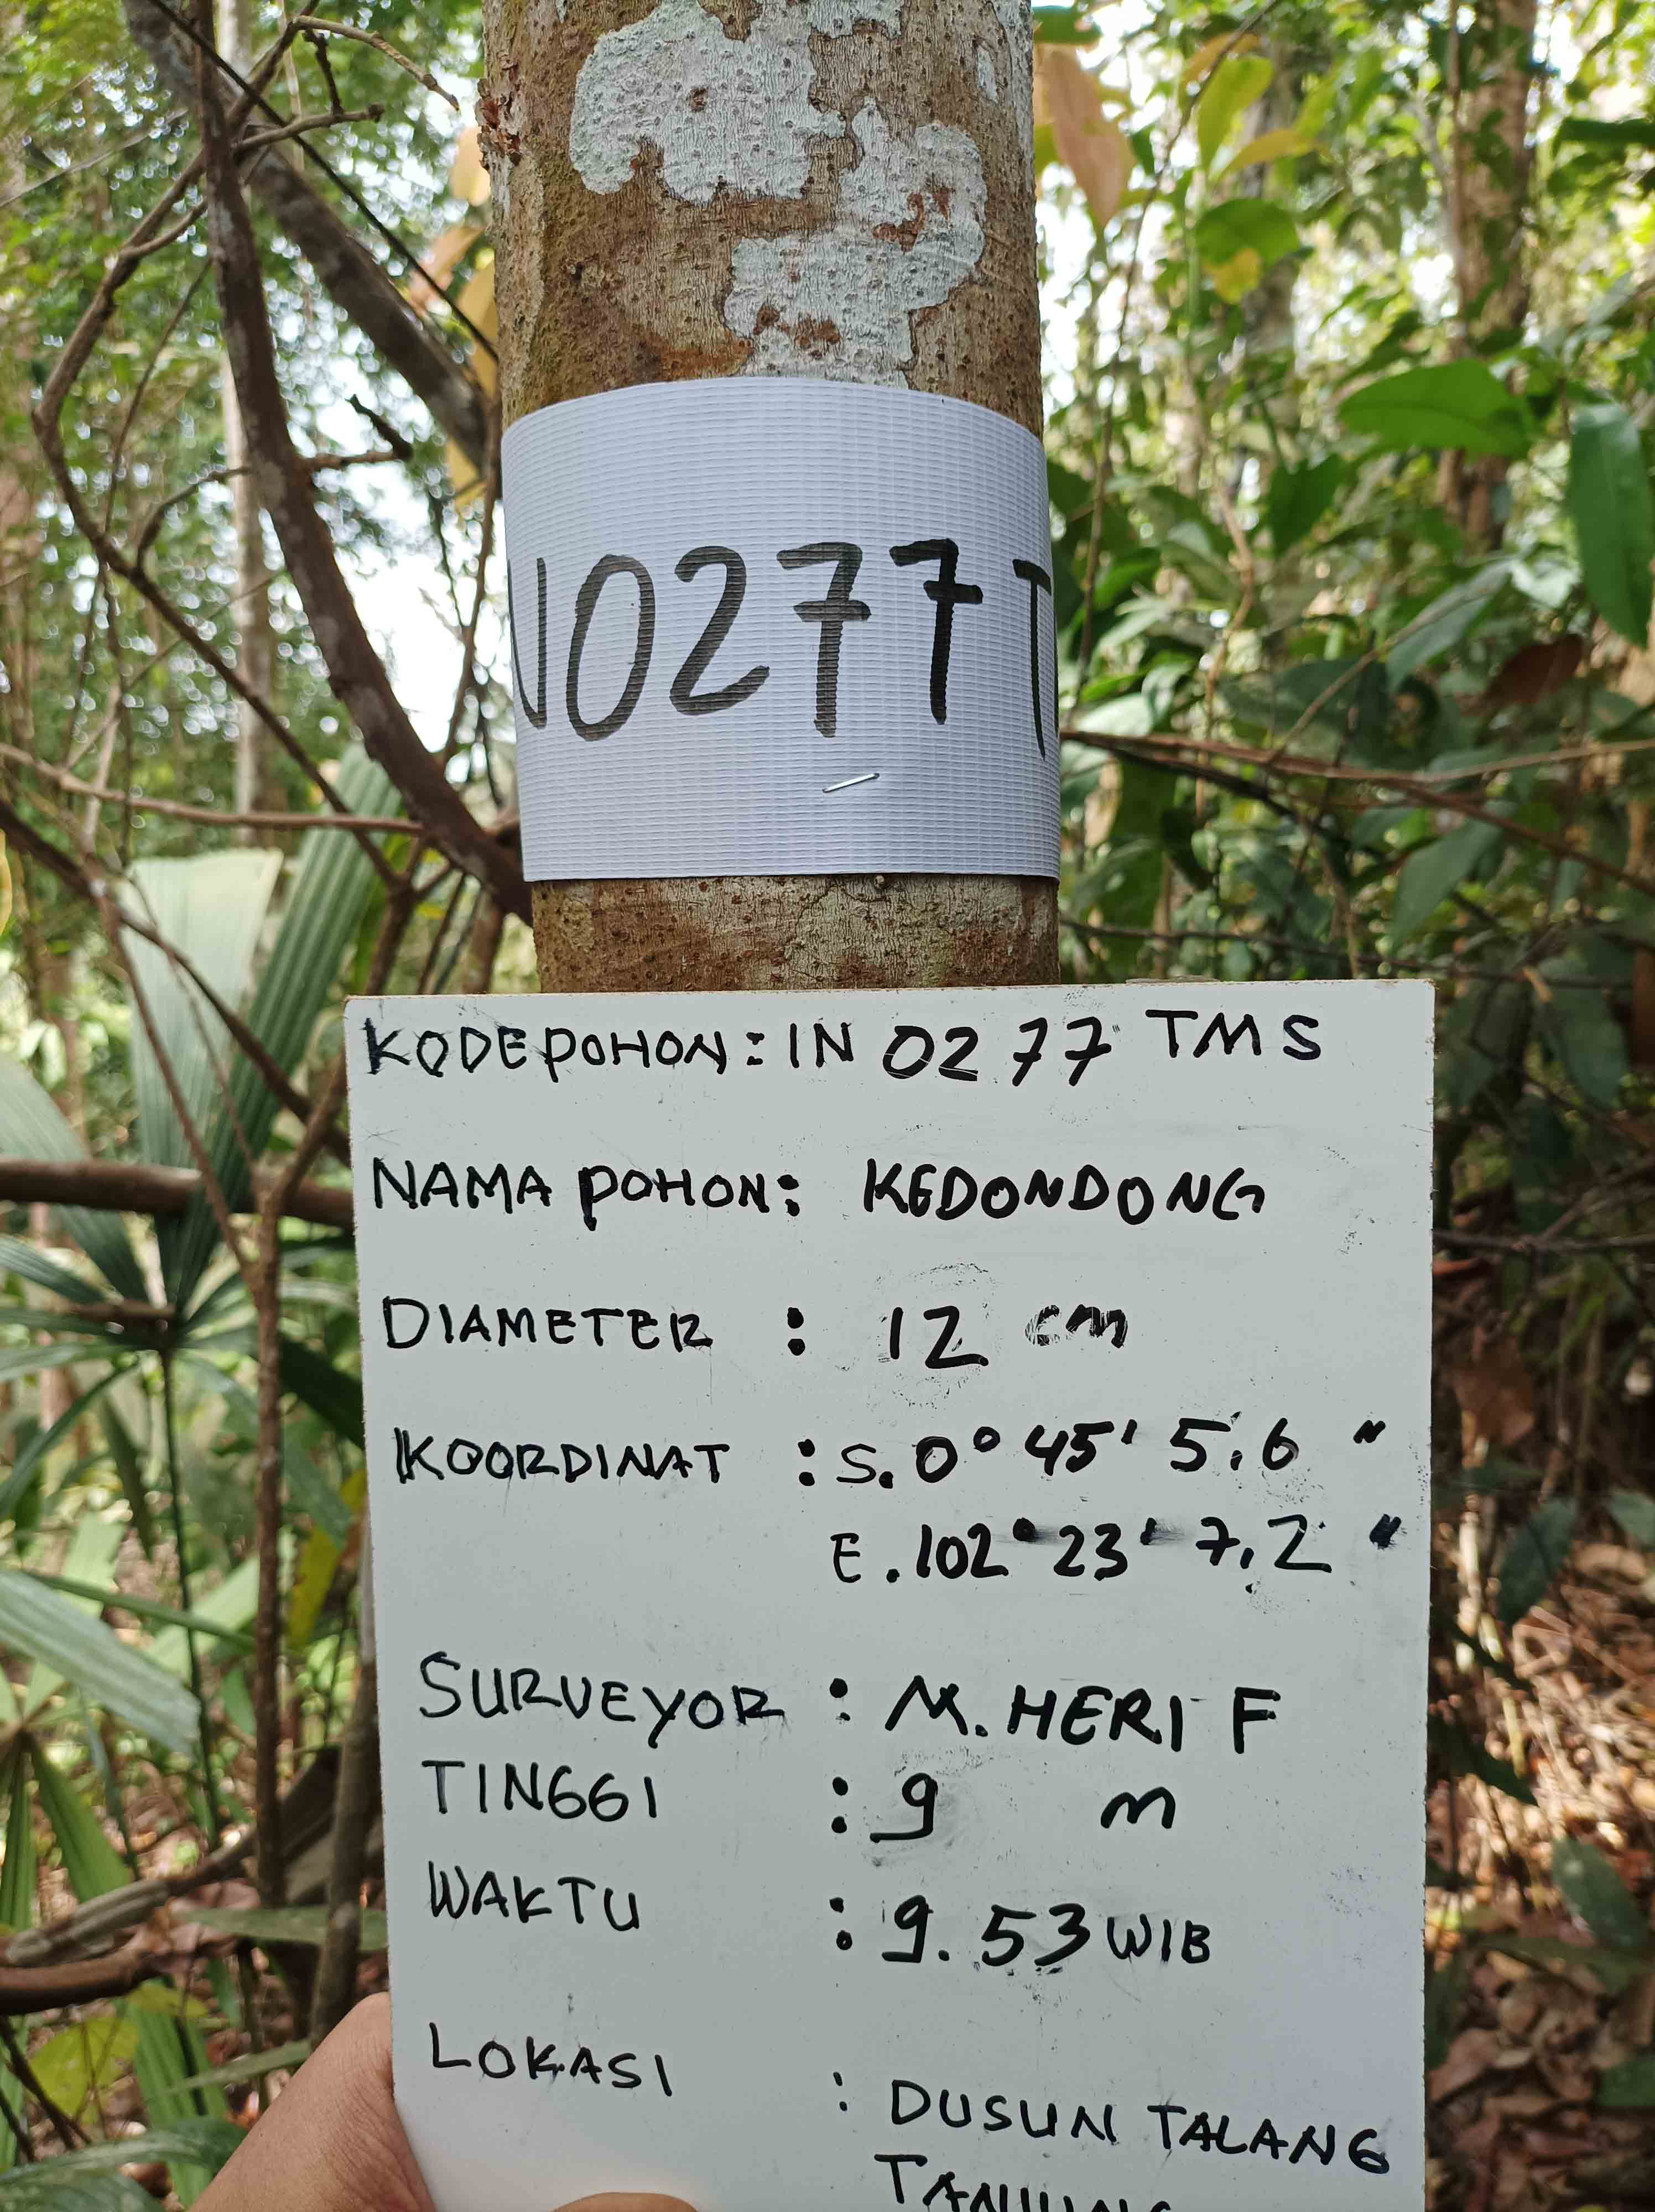 N0277T
KODE POHON : IN 0277 TMS
NAMA POHON : KEDONDONG
DIAMETER : 12 cm
KOORDINAT : S. 0° 45' 5,6 "
E. 102° 23' 7,2 "
SURVEYOR : M. HERI F
TINGGI : 9 m
WAKTU : 9. 53 WIB
LOKASI : DUSUN TALANG